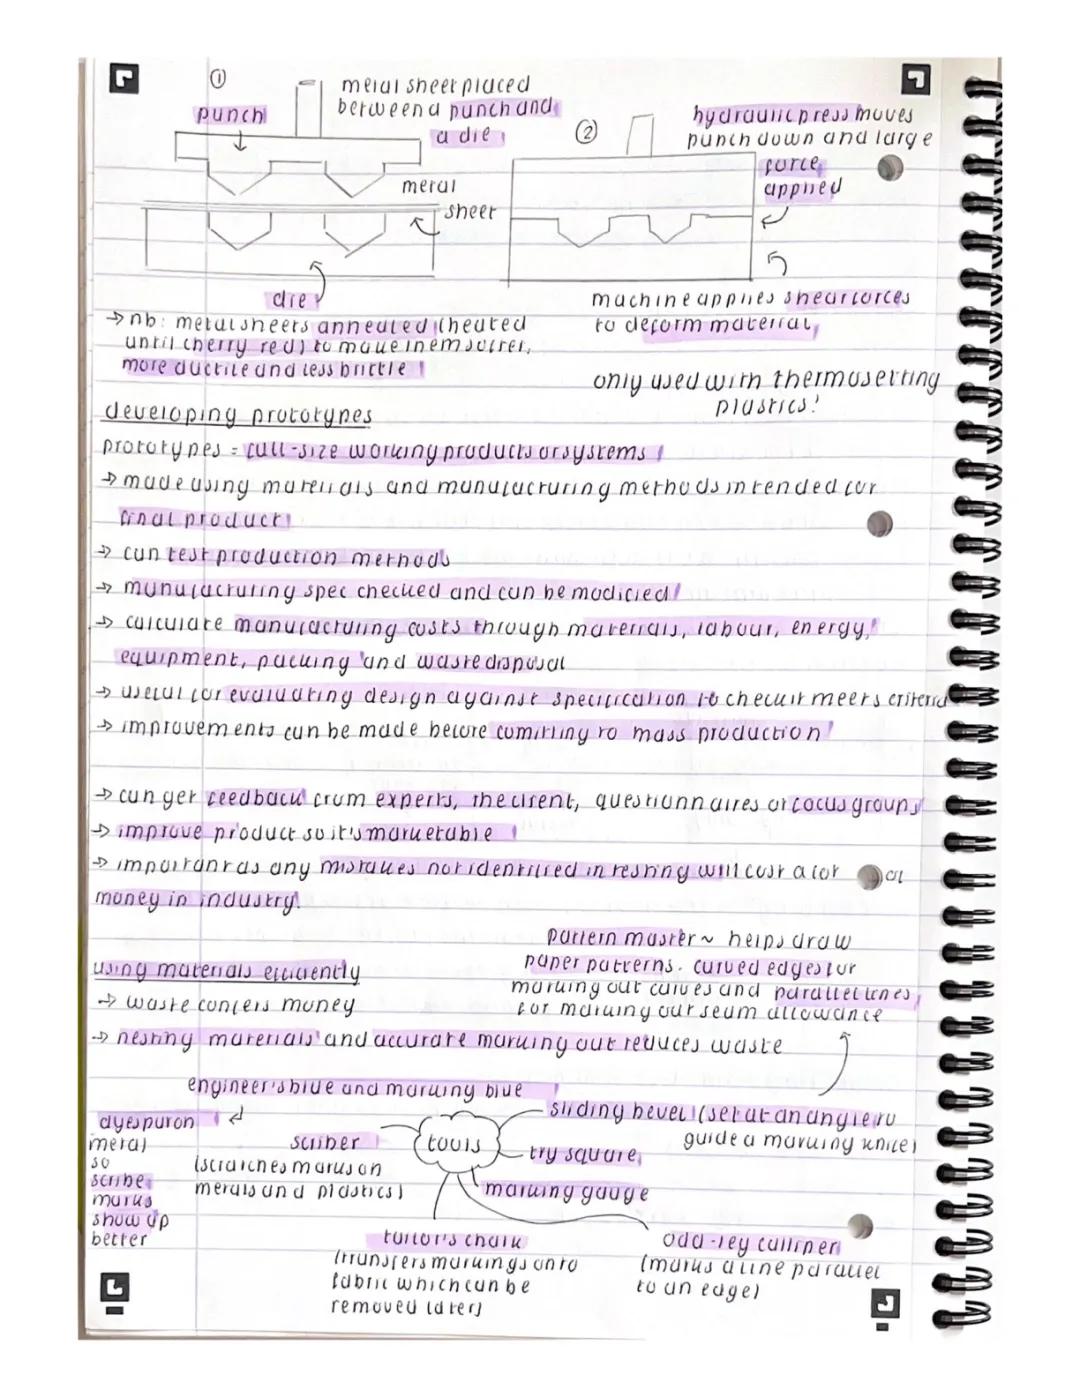 ①
punch
metal sheet placed
between a punch and
a die
②
hydraulic press moves
punch down and large
force
applied
metal
sheet
die
machine applies shear forces
to deform material
→ nb: metal sheets annealed (heated
until cherry red) to make them softer,
more ductile and less brittle!
only used with thermosetting
plastics!
developing prototypes
prototypes = full-size working products or systems!
→ made using materials and manufacturing methods intended for
final product!
→ can test production methods
→ manufacturing spec checked and can be modified!
→ calculate manufacturing costs through materials, labour, energy,
equipment, packing and waste disposal
→ useful for evaluating design against specification to check it meets criteria
→ improvements can be made before comitting to mass production!
→ can get feedback from experts, the client, questionnaires or focus groups
→ improve product so it's marketable!
→ important as any mistakes not identified in testing will cost a lot of
money in industry!
pattern master ~ helps draw
paper patterns. curved edges for
marking out curves and parallel lines
for marking out seam allowance
using materials efficiently
→ waste confers money
→ nesting materials and accurate marking out reduces waste
engineer's blue and marking blue
dye put on
metal
so
scribe
marks
show up
better
scriber
(scratches marks on
metals and plastics)
tools
sliding bevel (set at an angle to
guide a marking knife)
try square
marking gauge
tailor's chalk
(transfers markings onto
fabric which can be
removed later)
odd-ley calliper
(marks a line parallel
to an edge)